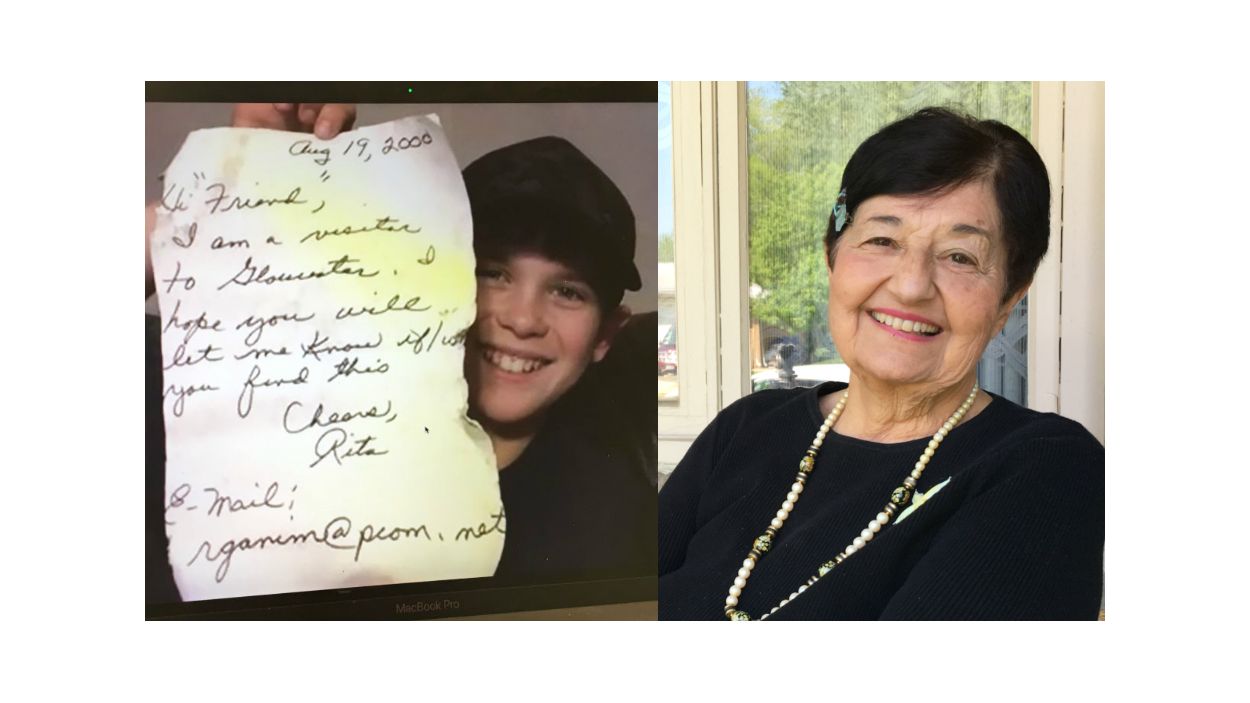 Aug 19, 2000
Hi "Friend",
I am a visitor
to Gloucester. I
hope you will
let me know if/
you find this
Cheers,
Rita
E-Mail:
rganim@pcom.net
MacBook Pro